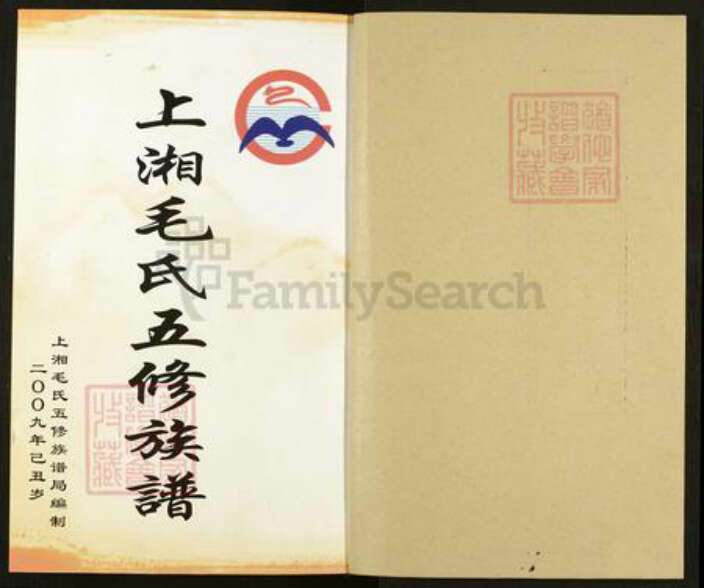 上湘毛氏五修族譜
上湘毛氏五修族谱局编制
二〇〇九年己丑岁
FamilySearch